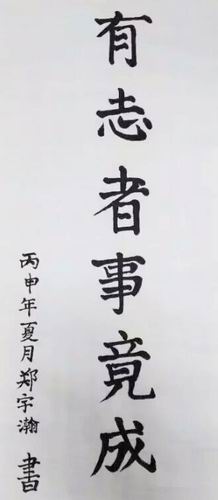 有志者事竟成
丙申年夏月郑宇瀚書